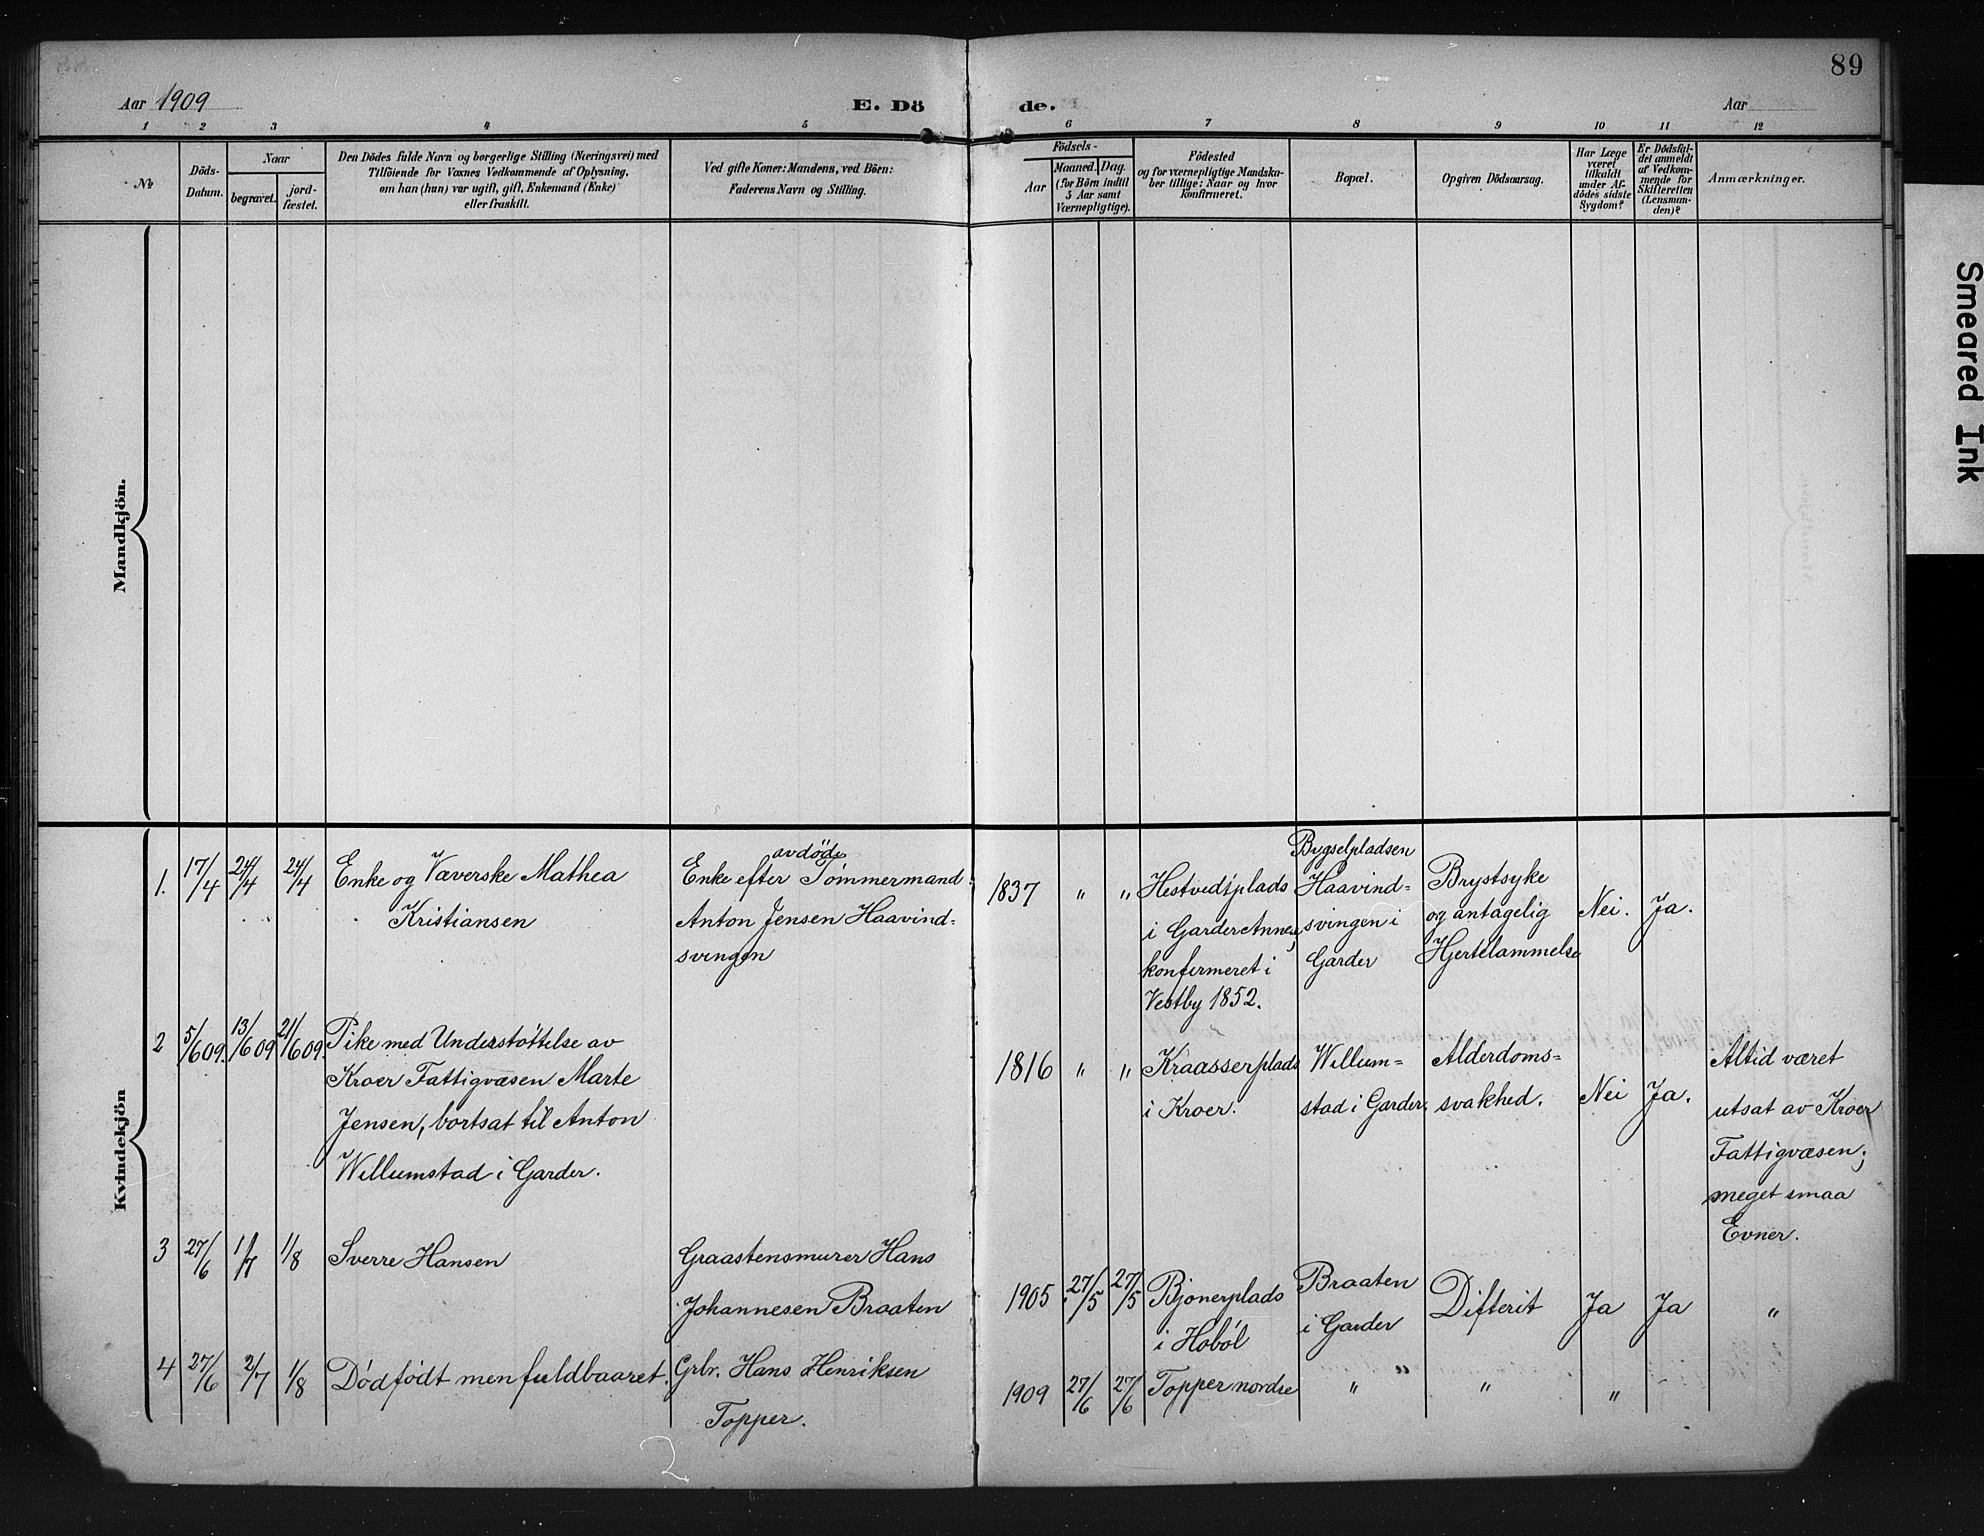 89
Aar 1909
E. Dö
de.
Aar
1 2 3 4 5 6 7 8 9 10 11 12
No
Döds-
Datum.
Naar
begravet.
jord-
fæstet.
Den Dödes fulde Navn og borgerlige Stilling (Næringsvei) med
Tilföiende for Voxnes Vedkommende af Oplysning,
om han (hun) var ugift, gift, Enkemand (Enke)
eller fraskilt.
Ved gifte Koner: Mandens, ved Börn:
Faderens Navn og Stilling.
Födsels-
Aar
Maaned. Dag.
(for Börn indtil
5 Aar samt
Værnepligtige).
Födested
og for værnepligtige Mandska-
ber tillige: Naar og hvor
konfirmeret.
Bopæl.
Opgiven Dödsaarsag.
Har Læge
været
tilkaldt
under Af-
dödes sidste
Sygdom?
Er Dödsfal-
det anmeldt
af Vedkom-
mende for
Skifteretten
(Lensman-
den)?
Anmærkninger.
Mandkjön.
Kvindekjön
1.
17/4
24/4
24/4
Enke og Væverske Mathea
Kristiansen
avdöde
Enke efter Tömmermand
Anton Jensen Haavind-
svingen
1837
"
"
Hestvedtplads
i Garder Annex,
konfirmeret i
Vestby 1852.
Bygselpladsen
Haavind-
svingen i
Garder
Brystsyke
og antagelig
Hjertelammelse
Nei.
Ja.
2
5/6 09.
13/6 09
21/6 09.
Pike med Understöttelse av
Kroer Fattigvæsen Marte
Jensen, bortsat til Anton
Willumstad i Garder.
1816
"
"
Kraasserplads
i Kroer.
Willum-
stad i Garder.
Alderdoms-
svakhed.
Nei
Ja.
Altid været
utsat av Kroer
Fattigvæsen;
meget smaa
Evner.
3
27/6
1/7
1/8
Sverre Hansen
Graastensmurer Hans
Johannesen Braaten
1905
27/5
27/5
Bjonerplads
i Hoböl
Braaten
i Garder
Difterit
Ja
Ja
"
4
27/6
2/7
1/8
Dödfödt men fuldbaaret.
Grbr. Hans Henriksen
Topper.
1909
27/6
27/6
Topper nordre
"
"
"
"
2
Smeared Ink